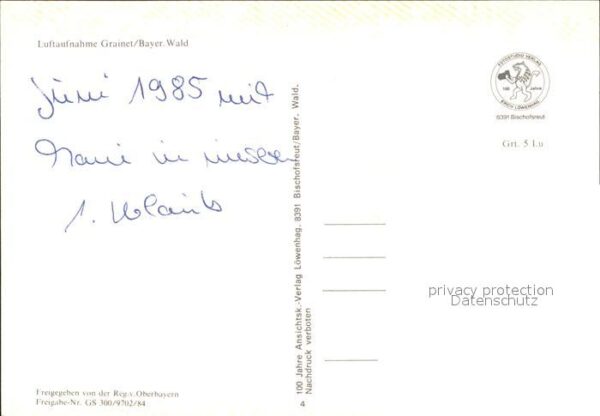 Luftaufnahme Grainet/Bayer. Wald
Juni 1985 mit
in
1. Urlaub
Freigegeben von der Reg.v.Oberbayern
Freigabe-Nr. GS 300/9702/84
100 Jahre Ansichtsk.-Verlag Löwenhag. 8391 Bischofsreut/Bayer. Wald.
Nachdruck verboten
4
FOTOSTUDIO VERLAG
100 Jahre
ERICH LÖWENHAG
8391 Bischofsreut
Grt. 5 Lu
privacy protection
Datenschutz